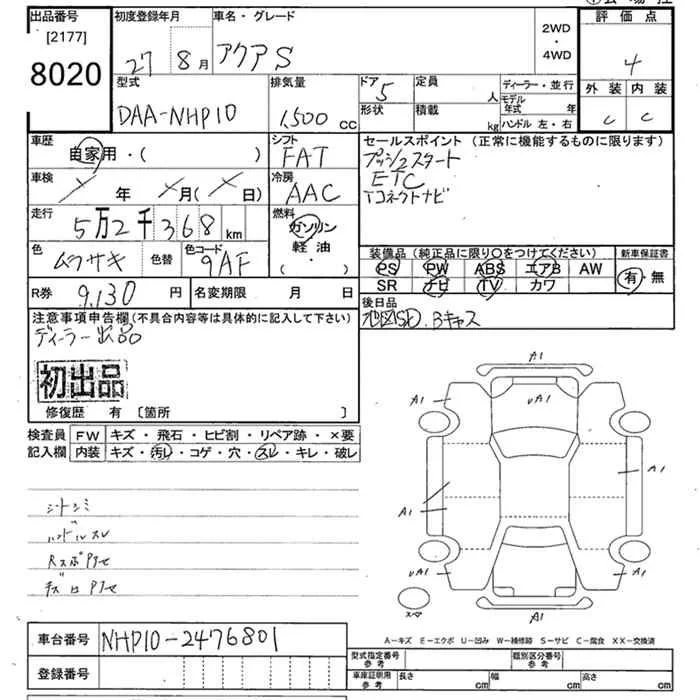 出品番号
[2177]
8020
初度登録年月
27 8月
車名・グレード
アクア S
2WD
・
4WD
評価点
4
外装 内装
C C
型式
DAA-NHP10
排気量
1,500 cc
ドア
5
定員
人
形状
積載
kg
ディーラー・並行
モデル年式 年
ハンドル 左・右
車歴
自家用・( )
シフト
FAT
セールスポイント (正常に機能するものに限ります)
プッシュスタート
ETC
Tコネクトナビ
車検
年 月( 日)
冷房
AAC
走行
5万2千368km
燃料
ガソリン
軽油
( ・ )
色
ムラサキ
色替
色コード
9AF
装備品 (純正品に限り〇をつけてください)
PS PW ABS エアB AW
SR ナビ TV カワ
新車保証書
有・無
R券 9,130円
名変期限 月 日
後日品
地図SD. Bキャス
注意事項申告欄(不具合内容等は具体的に記入して下さい)
ディーラー出品
初出品
修復歴 有 〔箇所 〕
検査員
記入欄
FW キズ・飛石・ヒビ割・リペア跡・×要
内装 キズ・汚レ・コゲ・穴・スレ・キレ・破レ
シートシミ
ハンドルスレ
A1
A1
UA1
A1
A1
A1
UA1
A1
A1
スペア
A-キズ E-エクボ U-凹み W-補修跡 S-サビ C-腐食 XX-交換済
車台番号 NHP10-2476801
登録番号
型式指定番号
参考
類別区分番号
参考
車庫証明用
参考
長さ cm 幅 cm 高さ cm